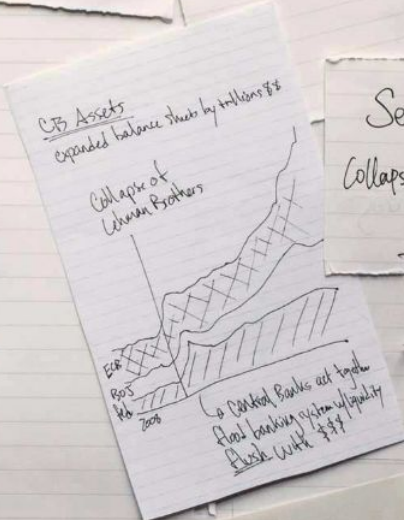 CB Assets
expanded balance sheets by trillions $$
Collapse of
Lehman Brothers
ECB
BOJ
Fed
2008
Central Banks act together
flood banking system w/ liquidity
flush with $$$
Se
Collaps